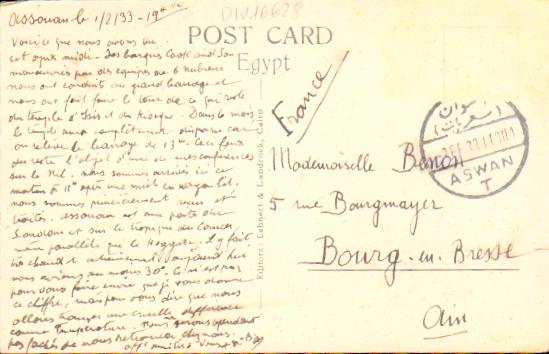 Assouan le 1/2/33 - 19h
DIV16628
Voici ce que nous avons vu
cet après midi. Des barques Cook and Son
manœuvrées par des équipes de 6 nubiens
nous ont conduits au grand barrage et
nous ont fait faire le tour de ce qui reste
du temple d'Isis et du kiosque. Dans 6 mois
le temple aura complètement disparu car
on relève le barrage de 13m. Ceci fera
du reste l'objet d'une de mes conférences
sur le Nil. nous sommes arrivés ici ce
matin à 11h après une nuit en wagon lit.
nous sommes princièrement reçus et
traités. Assouan est aux portes du
Soudan et sur le tropique du Cancer,
même parallèle que le Hoggar, il y fait
très chaud
nous avions au moins 30°. Ce n'est pas
pour vous faire envie que je vous donne
ce chiffre, mais pour vous dire que nous
allons trouver une cruelle différence
comme température. Nous serons cependant
pas fâchés de nous retrouver chez nous.
POST CARD
Egypt
France
Editors: Lehnert & Landrock, Cairo
ASWAN
T
Mademoiselle Benoit
5 rue Bourgmayer
Bourg-en-Bresse
Ain